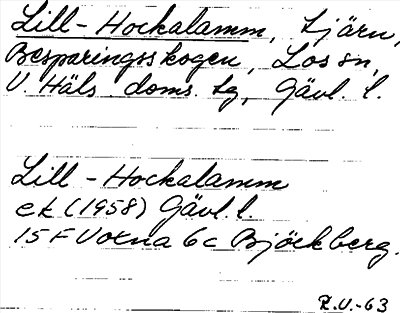 Lill-Hockalamm, tjärn,
Besparingsskogen, Los sn,
V. Häls. doms. tg, Gävl. l.
Lill-Hockalamm
ek (1958) Gävl. l.
15 F Voxna 6c Björkberg.
R.U.-63